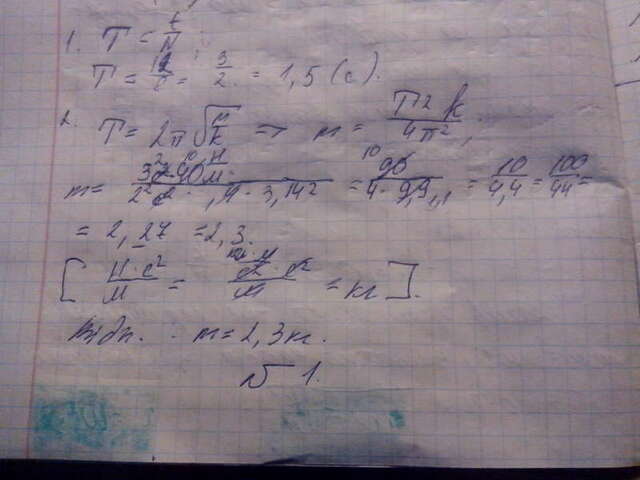 1. T = t/N;
T = 12/8 = 3/2 = 1,5 (с).
2. T = 2π√(m/k) => m = T²k/4π²,
m = 3² с² 40 Н/м / 2² · 4 · 3,14² = 90/4 · 9,9 = 10/4,4 = 100/44 =
= 2,27 = 2,3.
[Н·с²/м = кг·м/с² · с²/м = кг].
Відп. m = 2,3 кг.
№ 1.